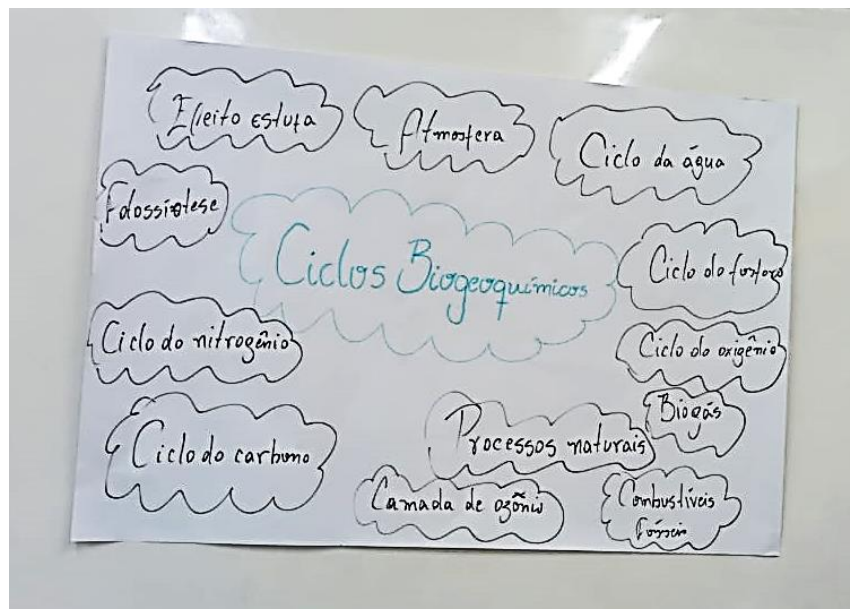 Efeito estufa
Atmosfera
Ciclo da água
Fotossíntese
Ciclos Biogeoquímicos
Ciclo do fosforo
Ciclo do nitrogênio
Ciclo do oxigênio
Biogás
Ciclo do carbono
Processos naturais
Camada de ozônio
Combustíveis
fósseis